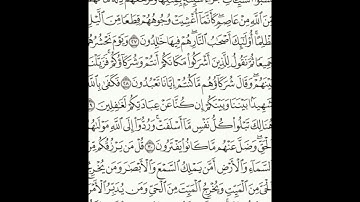 كسبوا السيئات جزاء سيئة بمثلها وترهقهم ذلة ما لهم
من الله من عاصم كأنما أغشيت وجوههم قطعا من اليل
مظلما أولئك أصحاب النار هم فيها خلدون ٢٧ ويوم نحشرهم
جميعا ثم نقول للذين أشركوا مكانكم أنتم وشركاؤكم فزيلنا
بينهم وقال شركاؤهم ما كنتم إيانا تعبدون ٢٨ فكفى بالله
شهيدا بيننا وبينكم إن كنا عن عبادتكم لغفلين ٢٩
هنالك تبلوا كل نفس ما أسلفت وردوا إلى الله مولىهم
الحق وضل عنهم ما كانوا يفترون ٣٠ قل من يرزقكم من
السماء والأرض أمن يملك السمع والأبصر ومن يخرج
الحي من الميت ويخرج الميت من الحي ومن يدبر الأمر